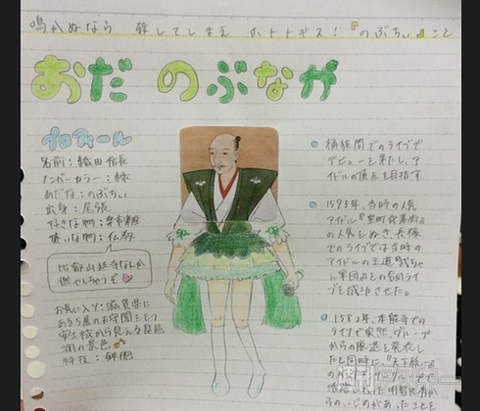 鳴かぬなら 殺してしまえ ホトトギス！『のぶちぃ』こと
おだ のぶなが
プロフィール
名前：織田信長
メンバーカラー：緑
あだな：のぶちぃ
出身：尾張
好きな物：楽市楽座
嫌いな物：仏教
比叡山延暦寺なんか
燃やしちゃうぞ♡
お気に入り：滋賀県に
ある5層の天守閣をもつ
安土城から見える琵琶
湖の景色
特技：鉄砲
桶狭間でのライブで
デビューを果たし、ア
イドルの頂点を目指す
1573年、当時の人気
アイドル『室町幕府』
の人気をぬき、長篠
でのライブでは当時の
アイドルの王道、武ちゃ
ん軍団との合同ライ
ブを成功させた。
1582年、本能寺で
のライブで突然、グループ
からの脱退を発表し
たと同時に『天下統一』